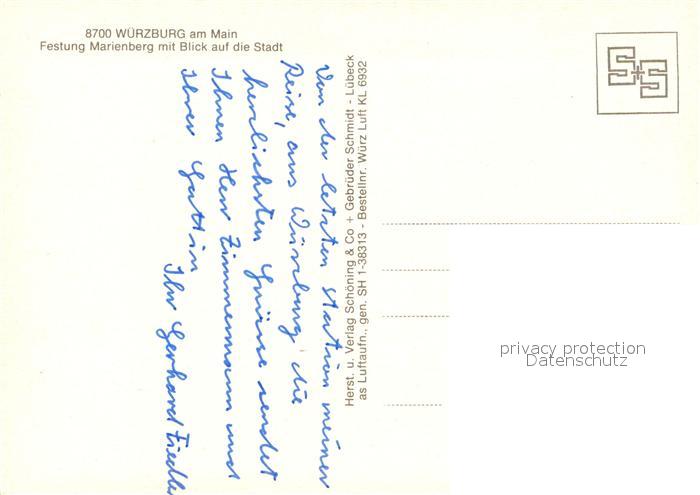 8700 WÜRZBURG am Main
Festung Marienberg mit Blick auf die Stadt
Von der letzten Station meiner
Reise, aus Würzburg die
herzlichsten Grüsse sendet
Ihnen Herr Zimmermann und
Ihrer Gattin
Ihr Gerhard Fiedler
Herst. u. Verlag Schöning & Co + Gebrüder Schmidt - Lübeck
as Luftaufn., gen. SH 1-38313 - Bestellnr. Würz Luft KL 6932
S+S
privacy protection
Datenschutz